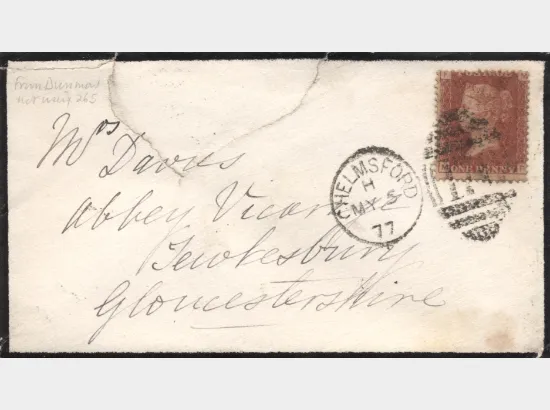 From Dunmow
not using 265
Mrs Davies
Abbey Vicar
Tewkesbury
Gloucestershire
CHELMSFORD
H
MY 5
77
ONE PENNY